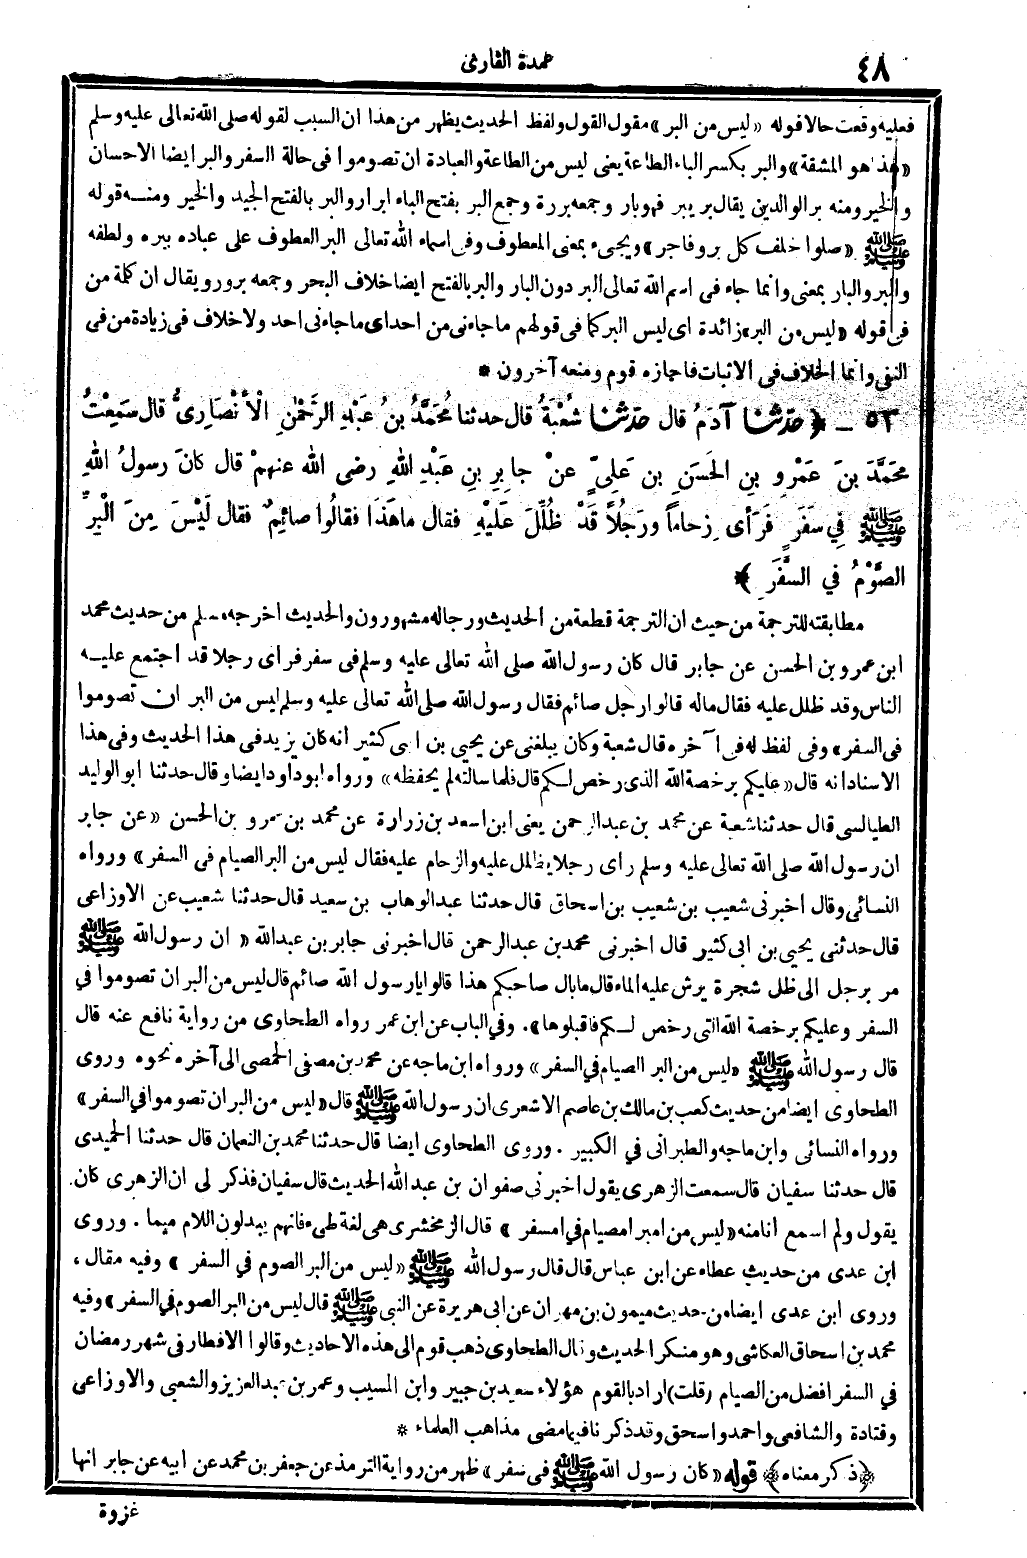 ٤٨
عمدة القارئ
فعليه وقعت حالا قوله «ليس من البر» مقول القول ولفظ الحديث يظهر من هذا ان السبب لقوله صلى الله تعالى عليه وسلم
«هذا هو المشقة» والبر بكسر الباء الطاعة يعنى ليس من الطاعة والعبادة ان تصوموا فى حالة السفر والبر ايضا الاحسان
والخير ومنه بر الوالدين يقال بر يبر فهو بار وجمعه بررة وجمع البر بفتح الباء ابرار والبر بالفتح الجيد والخير ومنه قوله
ﷺ «صلوا خلف كل بر وفاجر» ويجىء بمعنى المعطوف وفى اسماء الله تعالى البر العطوف على عباده ببره ولطفه
والبر والبار بمعنى وانما جاء فى اسم الله تعالى البر دون البار والبر بالفتح ايضا خلاف البحر وجمعه برور ويقال ان كلمة من
فى قوله «ليس من البر» زائدة اى ليس البر كما فى قولهم ما جاءنى من احد اى ما جاءنى احد ولا خلاف فى زيادة من فى
النفى وانما الخلاف فى الاثبات فاجازه قوم ومنعه آخرون *
٥٣ ــ ﴿ حَدَّثَنَا آدَمُ قال حَدَّثَنَا شُعْبَةُ قال حدثنا مُحَمَّدُ بنُ عَبْدِ الرَّحْمٰنِ الْأَنْصَارِىُّ قال سَمِعْتُ
مُحَمَّدَ بنَ عَمْرِو بنِ الحَسَنِ بنِ عَلِىٍّ عنْ جابِرِ بنِ عَبْدِ اللهِ رضى الله عنهمْ قال كانَ رسولُ اللهِ
ﷺ فِي سَفَرٍ فَرَأى زِحاماً ورَجُلاً قَدْ ظُلِّلَ عَلَيْهِ فقال ماهَذَا فقالُوا صائِمٌ فقال لَيْسَ مِنَ الْبِرِّ
الصَّوْمُ في السَّفَرِ ﴾ *
مطابقته للترجمة من حيث ان الترجمة قطعة من الحديث ورجاله مشهورون والحديث اخرجه مسلم من حديث محمد
ابن عمرو بن الحسن عن جابر قال كان رسول الله صلى الله تعالى عليه وسلم فى سفر فراى رجلا قد اجتمع عليه
الناس وقد ظلل عليه فقال ماله قالوا رجل صائم فقال رسول الله صلى الله تعالى عليه وسلم ليس من البر ان تصوموا
فى السفر» وفى لفظ له فى آخره قال شعبة وكان يبلغنى عن يحيى بن ابى كثير انه كان يزيد فى هذا الحديث وفى هذا
الاسناد انه قال «عليكم برخصة الله الذى رخص لكم قال فلما سالته لم يحفظه» ورواه ابو داود ايضا وقال حدثنا ابو الوليد
الطيالسى قال حدثنا شعبة عن محمد بن عبد الرحمن يعنى ابن اسعد بن زرارة عن محمد بن عمرو بن الحسن «عن جابر
ان رسول الله صلى الله تعالى عليه وسلم راى رجلا يظلل عليه والزحام عليه فقال ليس من البر الصيام فى السفر» ورواه
النسائى وقال اخبرنى شعيب بن شعيب بن اسحاق قال حدثنا عبد الوهاب بن سعيد قال حدثنا شعيب عن الاوزاعى
قال حدثنى يحيى بن ابى كثير قال اخبرنى محمد بن عبد الرحمن قال اخبرنى جابر بن عبد الله «ان رسول الله ﷺ
مر برجل الى ظل شجرة يرش عليه الماء قال ما بال صاحبكم هذا قالوا يا رسول الله صائم قال ليس من البر ان تصوموا في
السفر وعليكم برخصة الله التى رخص لكم فاقبلوها». وفي الباب عن ابن عمر رواه الطحاوى من رواية نافع عنه قال
قال رسول الله ﷺ «ليس من البر الصيام في السفر» ورواه ابن ماجه عن محمد بن مصفى الحمصى الى آخره نحوه وروى
الطحاوى ايضا من حديث كعب بن مالك بن عاصم الاشعرى ان رسول الله ﷺ قال «ليس من البر ان تصوموا في السفر»
ورواه النسائى وابن ماجه والطبرانى في الكبير. وروى الطحاوى ايضا قال حدثنا محمد بن النعمان قال حدثنا الحميدى
قال حدثنا سفيان قال سمعت الزهرى يقول اخبرنى صفوان بن عبد الله الحديث قال سفيان فذكر لى ان الزهرى كان
يقول ولم اسمع انا منه «ليس من امبر امصيام في امسفر» قال الزمخشرى هى لغة طىء فانهم يبدلون اللام ميما. وروى
ابن عدى من حديث عطاء عن ابن عباس قال قال رسول الله ﷺ «ليس من البر الصوم في السفر» وفيه مقال،
وروى ابن عدى ايضا من حديث ميمون بن مهران عن ابى هريرة عن النبى ﷺ قال ليس من البر الصوم في السفر» وفيه
محمد بن اسحاق العكاشى وهو منكر الحديث وقال الطحاوى ذهب قوم الى هذه الاحاديث وقالوا الافطار فى شهر رمضان
في السفر افضل من الصيام (قلت) اراد بالقوم هؤلاء سعيد بن جبير وابن المسيب وعمر بن عبد العزيز والشعبى والاوزاعى
وقتادة والشافعى واحمد واسحق وقد ذكرنا فيما مضى مذاهب العلماء *
﴿ذكر معناه﴾ قوله «كان رسول الله ﷺ فى سفر» ظهر من رواية الترمذى عن جعفر بن محمد عن ابيه عن جابر انها
غزوة